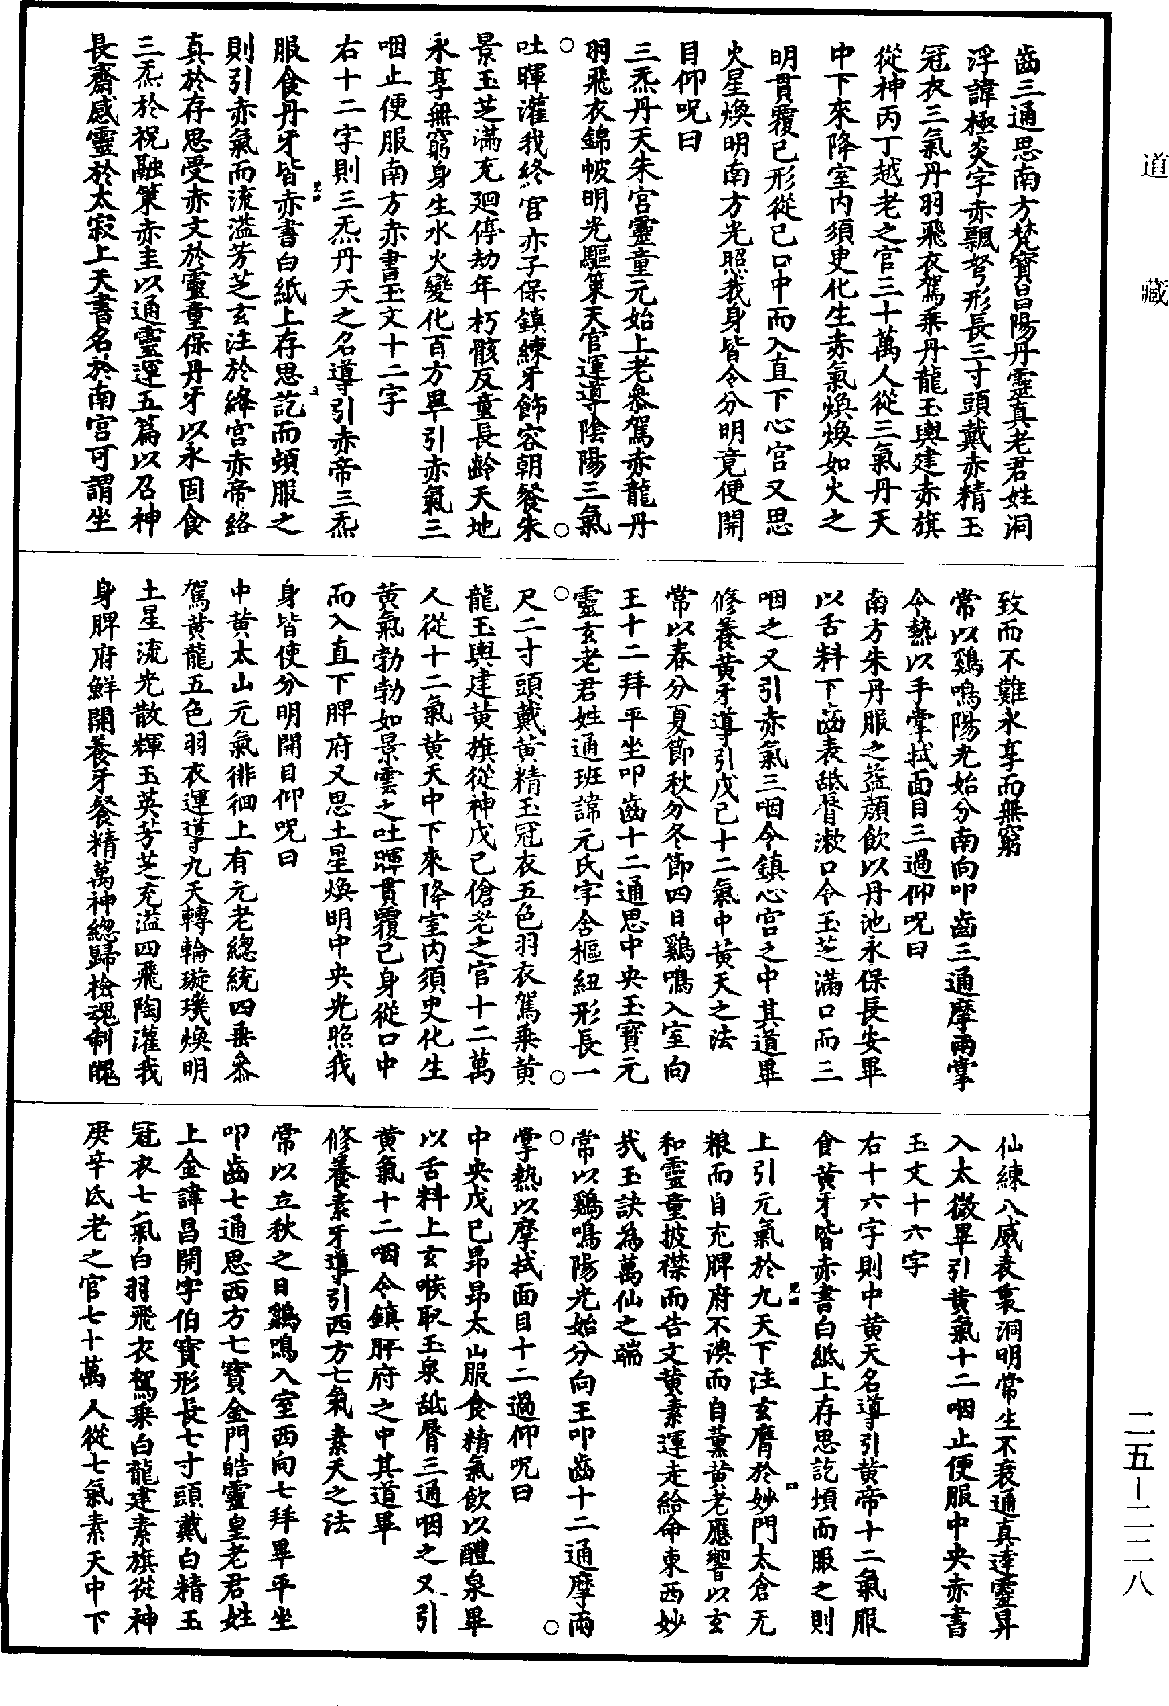 道藏
齒三通思南方梵寶昌陽丹靈真老君姓洞
浮諱極炎字赤飄弩形長三寸頭戴赤精玉
冠衣三氣丹羽飛衣駕乘丹龍玉輿建赤旗
從神丙丁越老之官三十萬人從三氣丹天
中下來降室內須臾化生赤氣煥煥如火之
明貫覆己形從己口中而入直下心宮又思
火星煥明南方光照我身皆令分明竟便開
目仰呪曰
三炁丹天朱宮靈童元始上老叅駕赤龍丹
羽飛衣錦帔明光驅策天官運導陰陽三氣
吐暉灌我絳宮亦子保鎮練牙飾容朝餐朱
景玉芝滿充廻停劫年朽骸反童長齡天地
永享無窮身生水火變化百方畢引赤氣三
咽止便服南方赤書玉文十二字
右十二字則三炁丹天之名導引赤帝三炁
服食丹牙皆赤書白紙上存思訖而頓服之
則引赤氣而流溢芳芝玄注於絳宮赤帝絡
真於存思受赤文於靈童保丹牙以永固食
三炁於祝融策赤圭以通靈運五篇以召神
長齋感靈於太寂上天書名於南宮可謂坐
致而不難永享而無窮
常以鷄鳴陽光始分南向叩齒三通摩兩掌
令熱以手掌拭面目三過仰呪曰
南方朱丹服之益顏飲以丹池永保長安畢
以舌料下齒表舐脣漱口令玉芝滿口而三
咽之又引赤氣三咽令鎮心宮之中其道畢
修養黃牙導引戊己十二氣中黃天之法
常以春分夏節秋分冬節四日鷄鳴入室向
王十二拜平坐叩齒十二通思中央玉寶元
靈玄老君姓通班諱元氏字含樞紐形長一
尺二寸頭戴黃精玉冠衣五色羽衣駕乘黃
龍玉輿建黃旗從神戊己傖老之官十二萬
人從十二氣黃天中下來降室內須臾化生
黃氣勃勃如景雲之吐暉貫覆己身從口中
而入直下脾府又思土星煥明中央光照我
身皆使分明開目仰呪曰
中黃太山元氣徘徊上有元老總統四乘叅
駕黃龍五色羽衣運導九天轉輪璇璣煥明
土星流光散輝玉英芳芝充溢四飛陶灌我
身脾府鮮開養牙餐精萬神總歸檢魂制魄
仙練八威表裏洞明常生不衰通真達靈昇
入太微畢引黃氣十二咽止便服中央赤書
玉文十六字
右十六字則中黃天名導引黃帝十二氣服
食黃牙皆赤書白紙上存思訖頓而服之則
上引元氣於九天下注玄膺於妙門太倉无
粮而自充脾府不澳而自薰黃老應響以玄
和靈童披襟而告文黃素運走給命東西妙
哉玉訣為萬仙之端
常以鷄鳴陽光始分向王叩齒十二通摩兩
掌熱以摩拭面目十二過仰呪曰
中央戊己昂昂太山服食精氣飲以醴泉畢
以舌料上玄喉取玉泉舐脣三通咽之又引
黃氣十二咽令鎮脾府之中其道畢
修養素牙導引西方七氣素天之法
常以立秋之日鷄鳴入室西向七拜畢平坐
叩齒七通思西方七寶金門皓靈皇老君姓
上金諱昌開字伯寶形長七寸頭戴白精玉
冠衣七氣白羽飛衣駕乘白龍建素旗從神
庚辛氐老之官七十萬人從七氣素天中下
二五-二二八